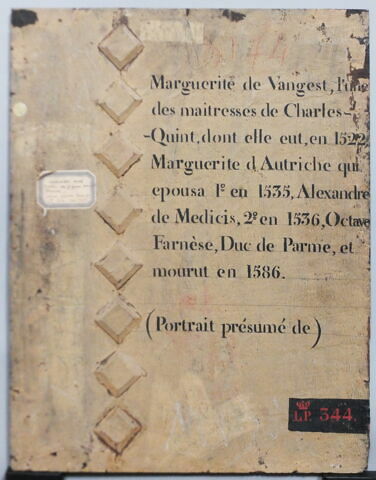 Marguerite de Vangest, l'une
des maitresses de Charles-
-Quint, dont elle eut, en 1522,
Marguerite d'Autriche qui
epousa 1º en 1535, Alexandre
de Medicis, 2º en 1536, Octave
Farnèse, Duc de Parme, et
mourut en 1586.
(Portrait présumé de)
L.P. 344.